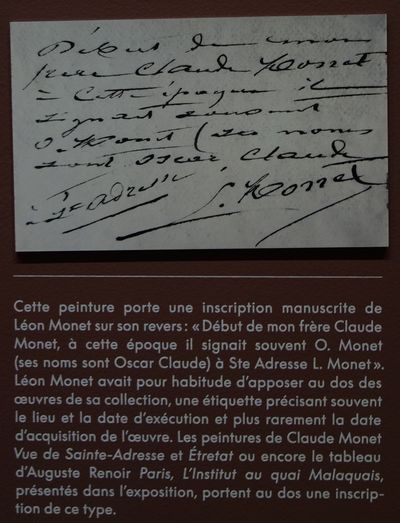 Début de mon
frère Claude Monet
à cette époque il
signait souvent
O. Monet (ses noms
sont Oscar Claude
Ste Adresse
L. Monet
Cette peinture porte une inscription manuscrite de
Léon Monet sur son revers : « Début de mon frère Claude
Monet, à cette époque il signait souvent O. Monet
(ses noms sont Oscar Claude) à Ste Adresse L. Monet ».
Léon Monet avait pour habitude d'apposer au dos des
œuvres de sa collection, une étiquette précisant souvent
le lieu et la date d'exécution et plus rarement la date
d'acquisition de l'œuvre. Les peintures de Claude Monet
Vue de Sainte-Adresse et Étretat ou encore le tableau
d'Auguste Renoir Paris, L'Institut au quai Malaquais,
présentés dans l'exposition, portent au dos une inscrip-
tion de ce type.